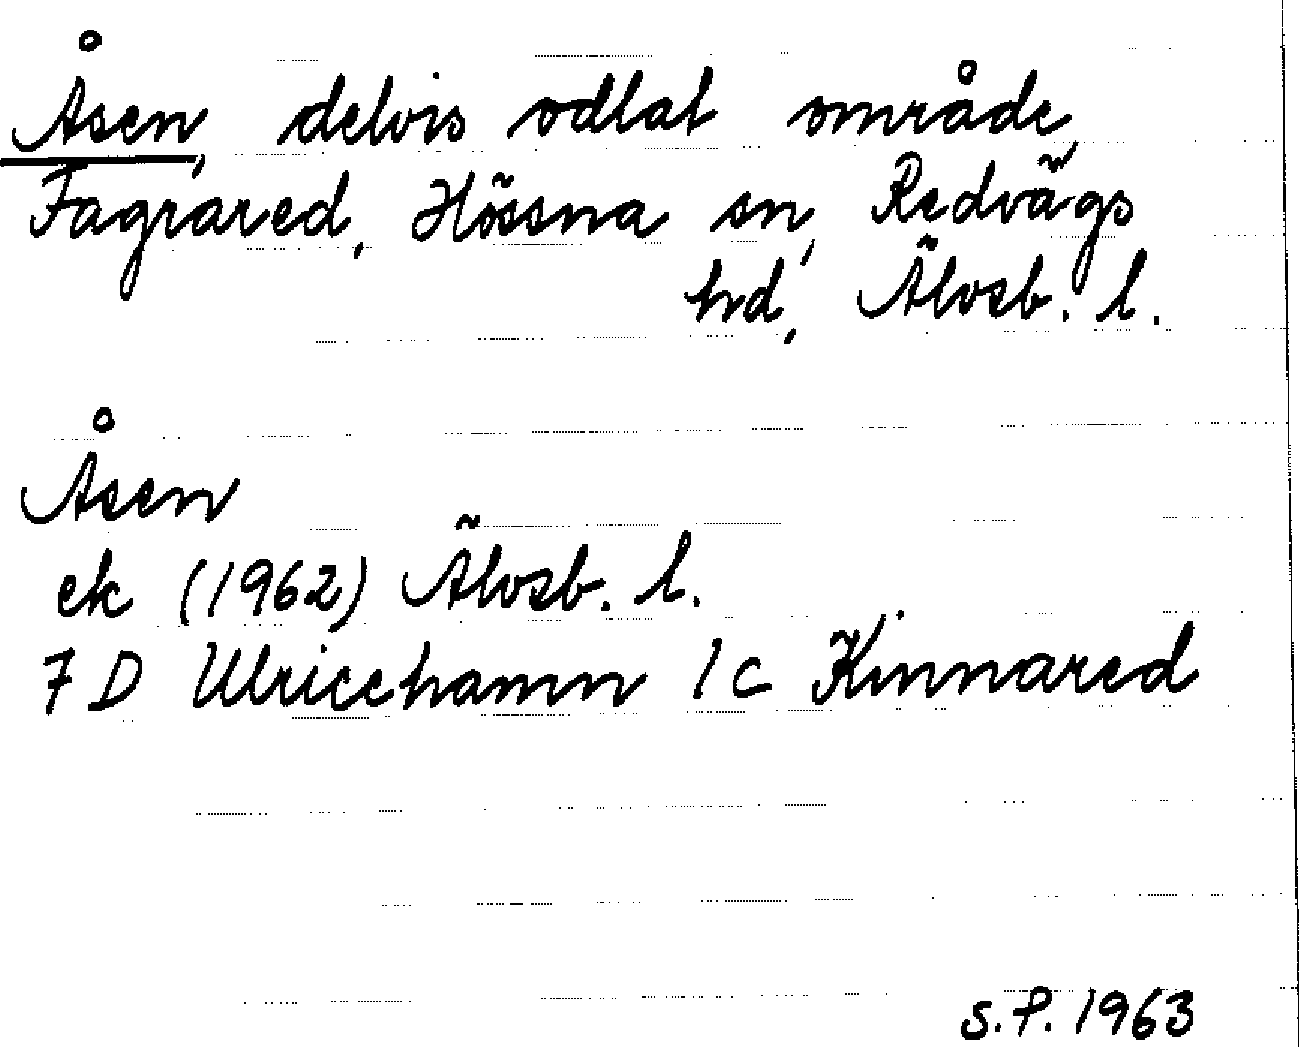 Åsen, delvis odlat område,
Fagrared, Hössna sn, Redvägs
hd, Älvsb. l.
Åsen
ek (1962) Älvsb. l.
7 D Ulricehamn 1 c Kinnared
S.P. 1963